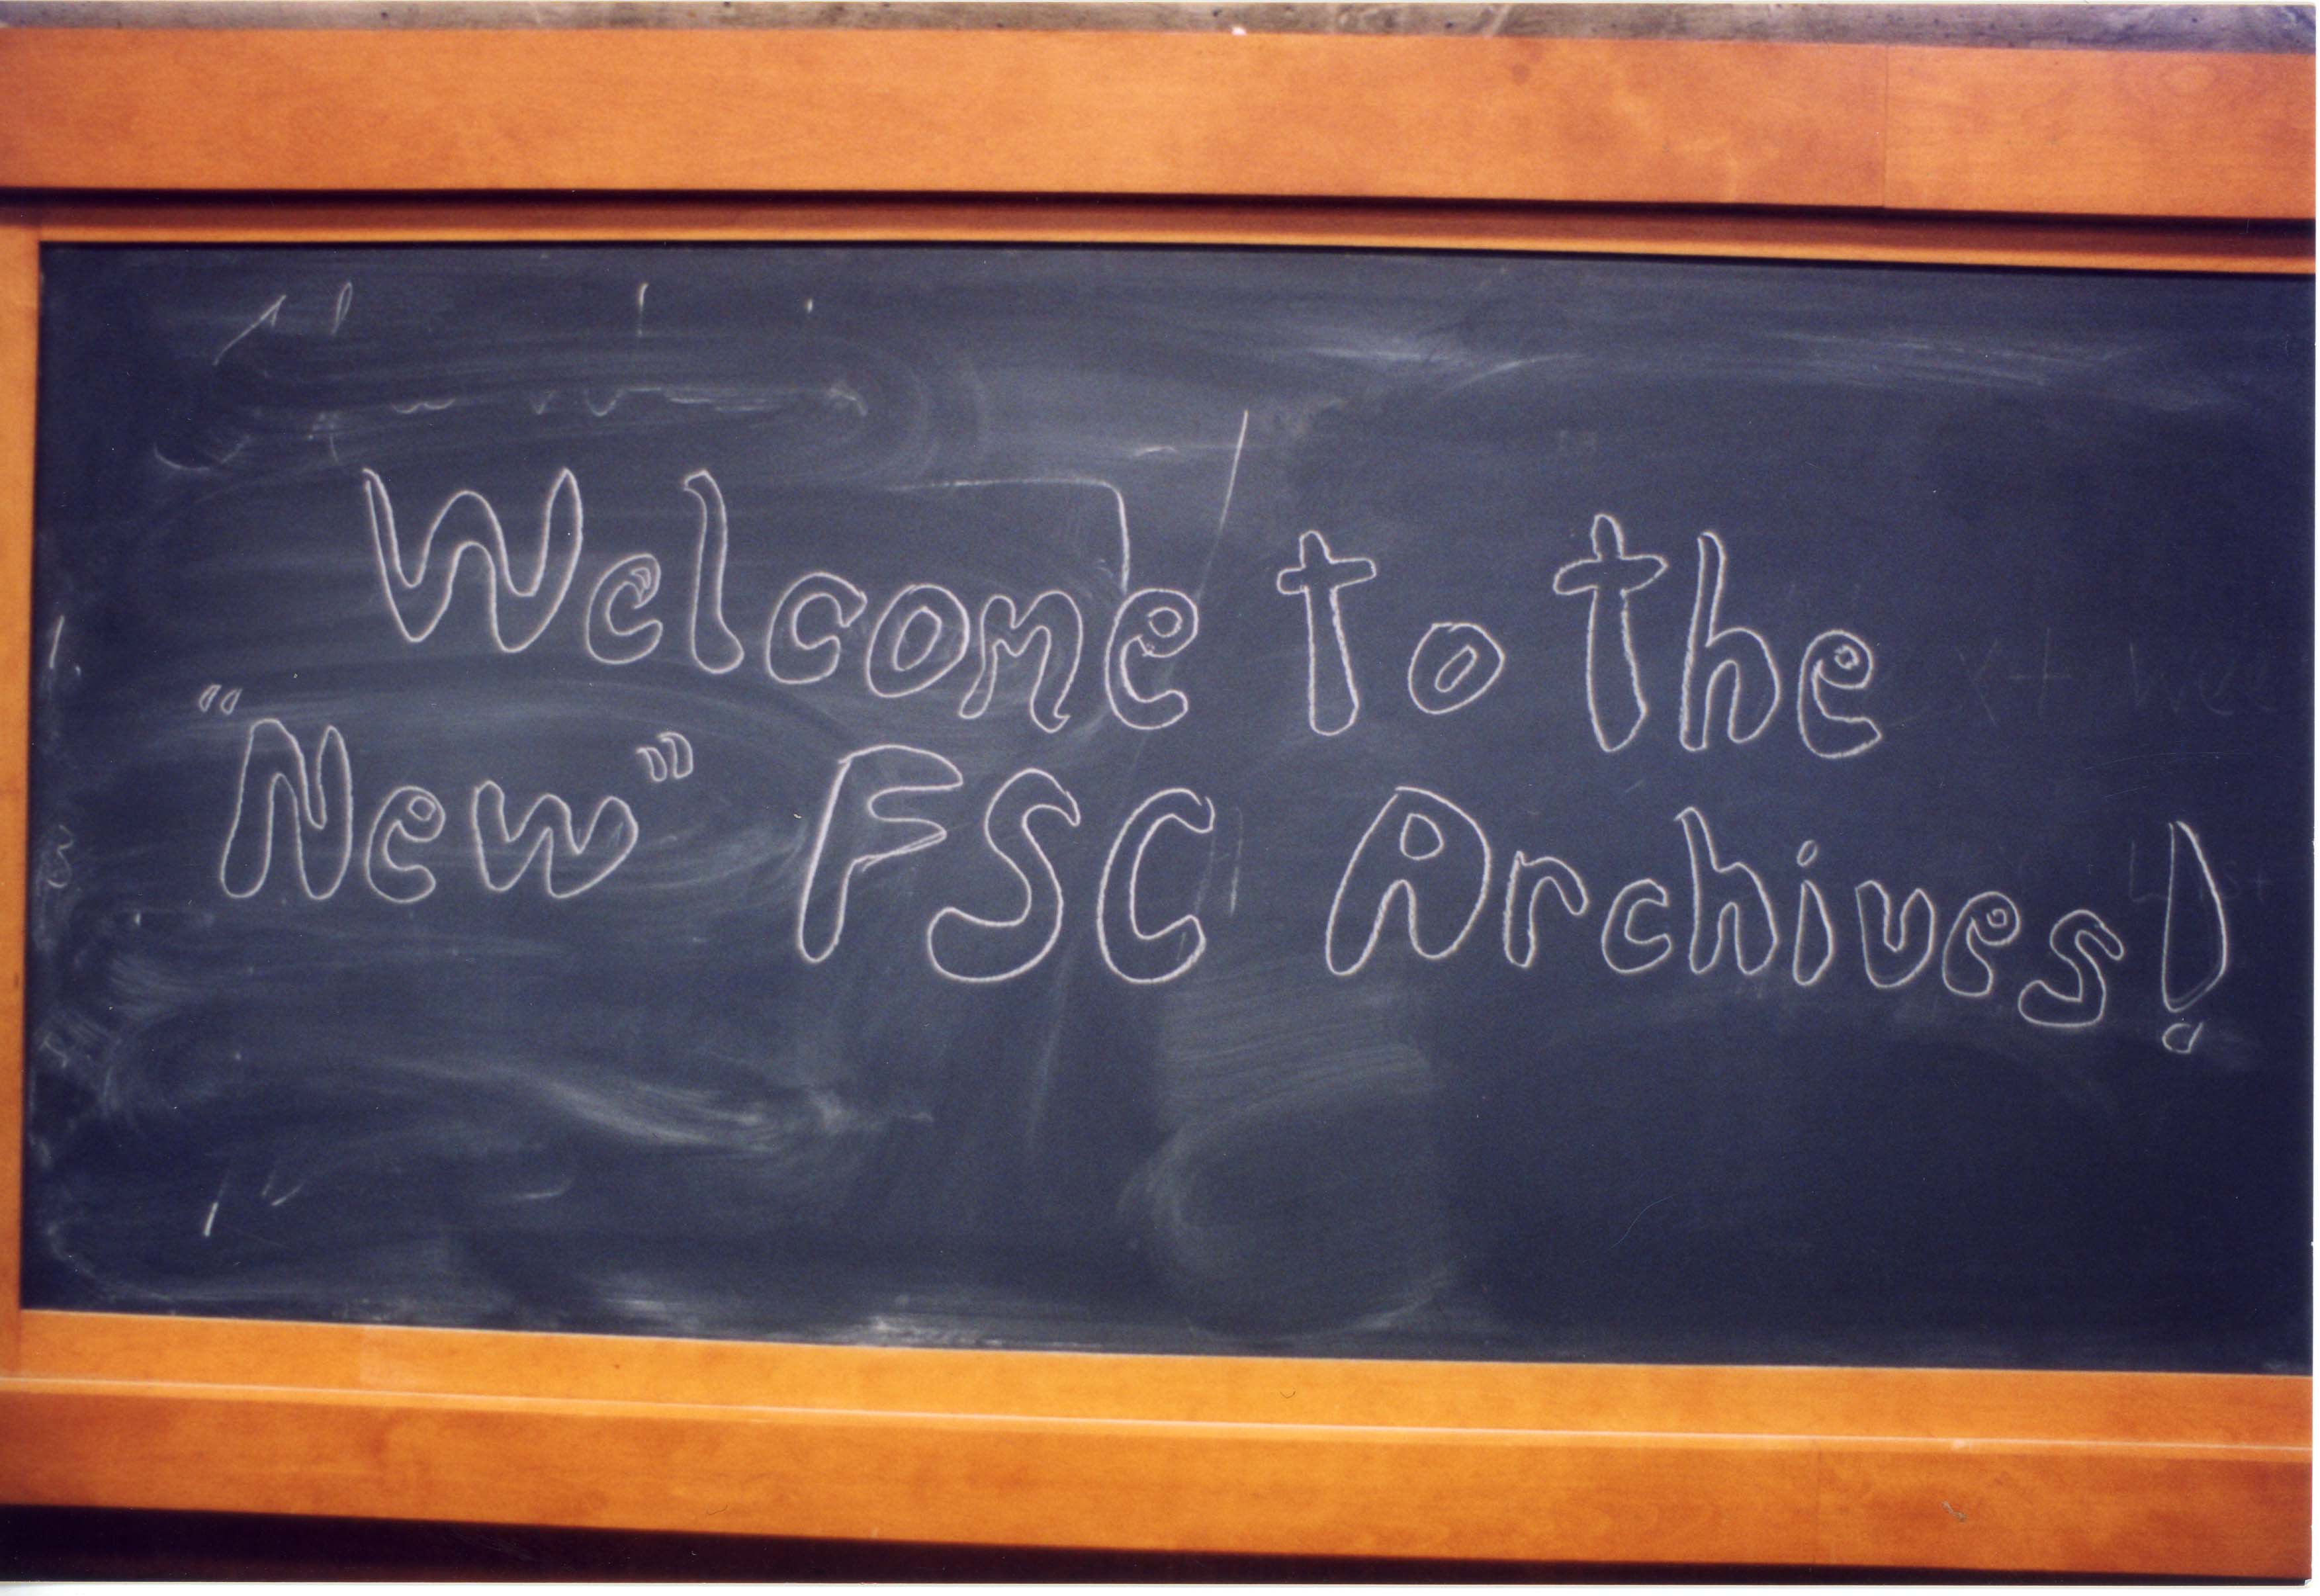 Welcome to the
"New" FSC Archives!